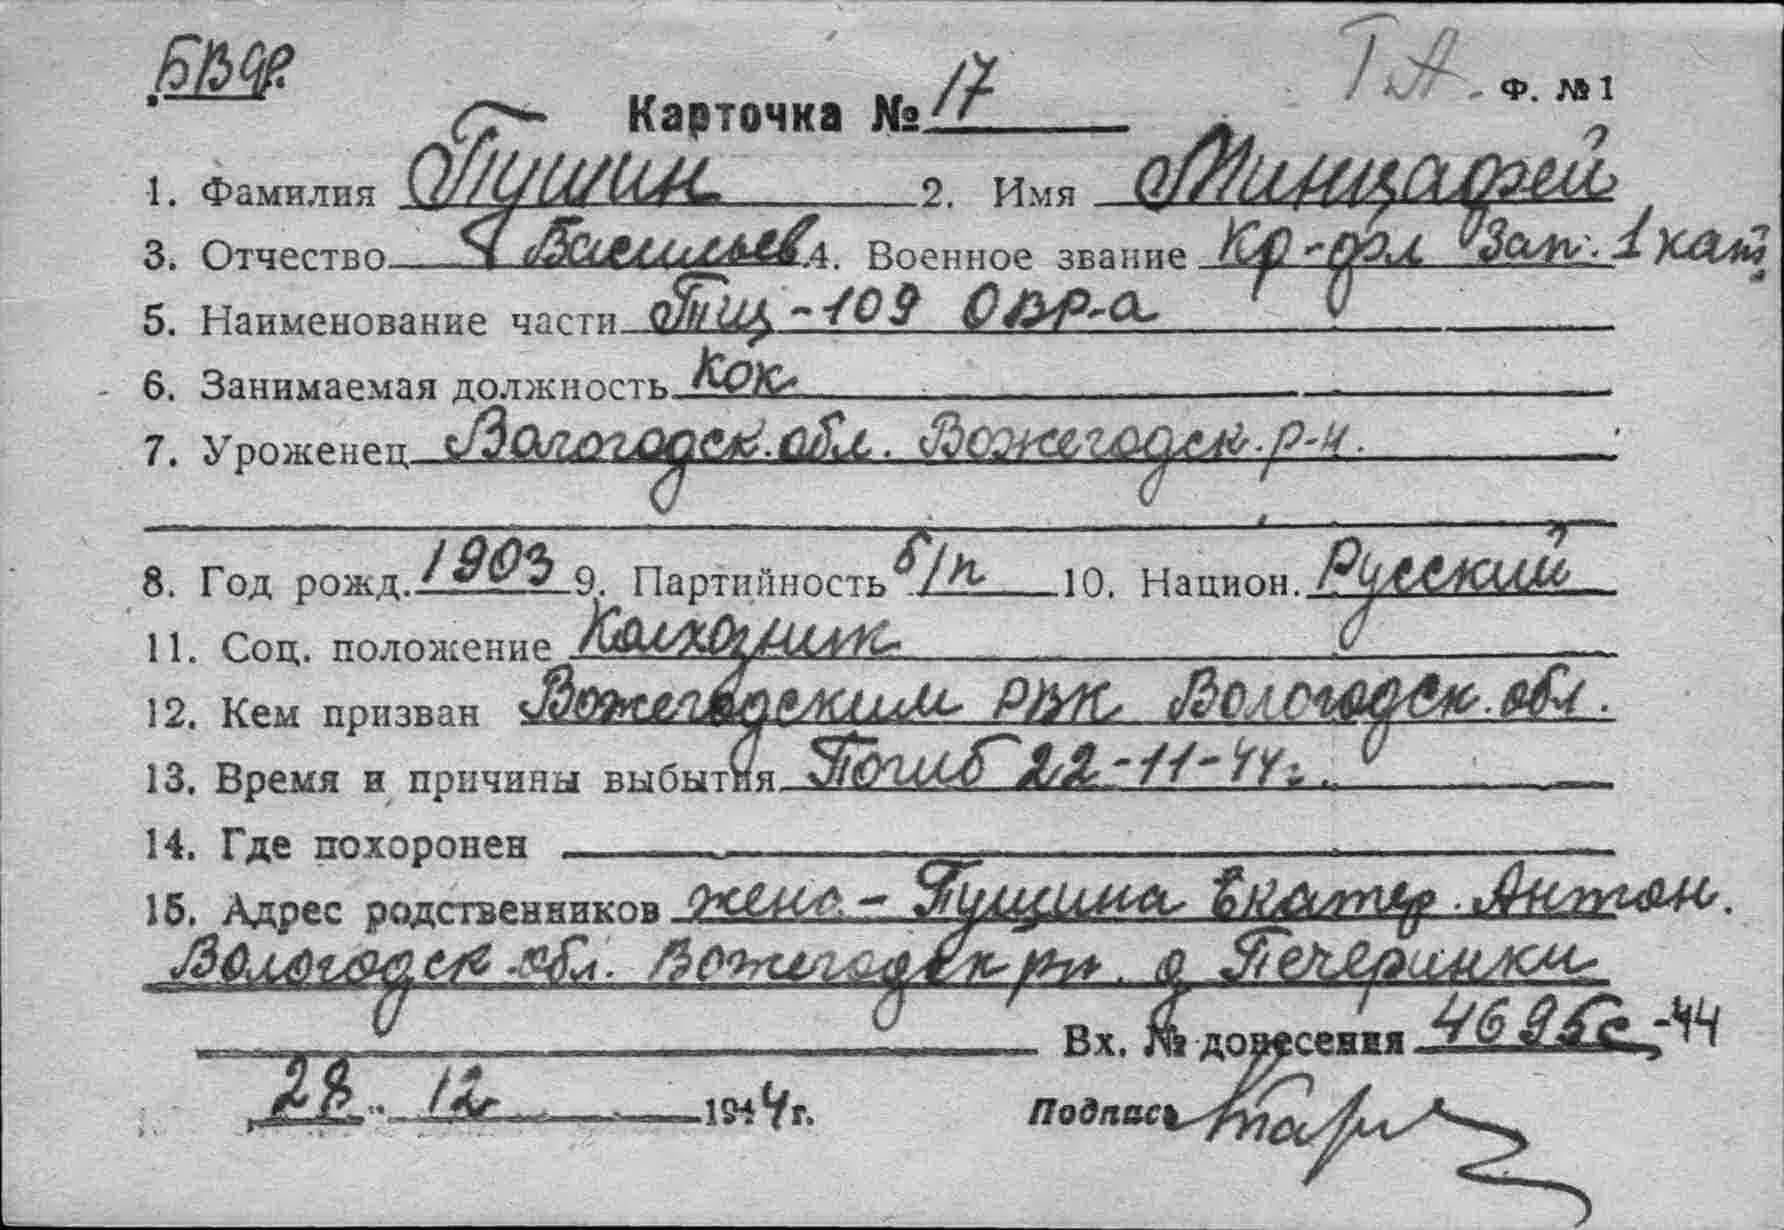 БВФ.
Т.А. Ф. №1
Карточка № 17
1. Фамилия Пушин 2. Имя
3. Отчество Васильев 4. Военное звание Кр-фл Зап. 1 кат.
5. Наименование части Тщ-109 ОВР-а
6. Занимаемая должность Кок
7. Уроженец Вологодск. обл. Вожегодск. р-н.
8. Год рожд. 1903 9. Партийность б/п 10. Национ. Русский
11. Соц. положение Колхозник
12. Кем призван Вожегодским РВК Вологодск. обл.
13. Время и причины выбытия Погиб 22-11-44г.
14. Где похоронен
15. Адрес родственников жена - Пущина Екатер. Антон.
Вологодск обл. Вожегодск рн. д Печеринки
Вх. № донесения 4695с-44
28 12 1944 г. Подпись